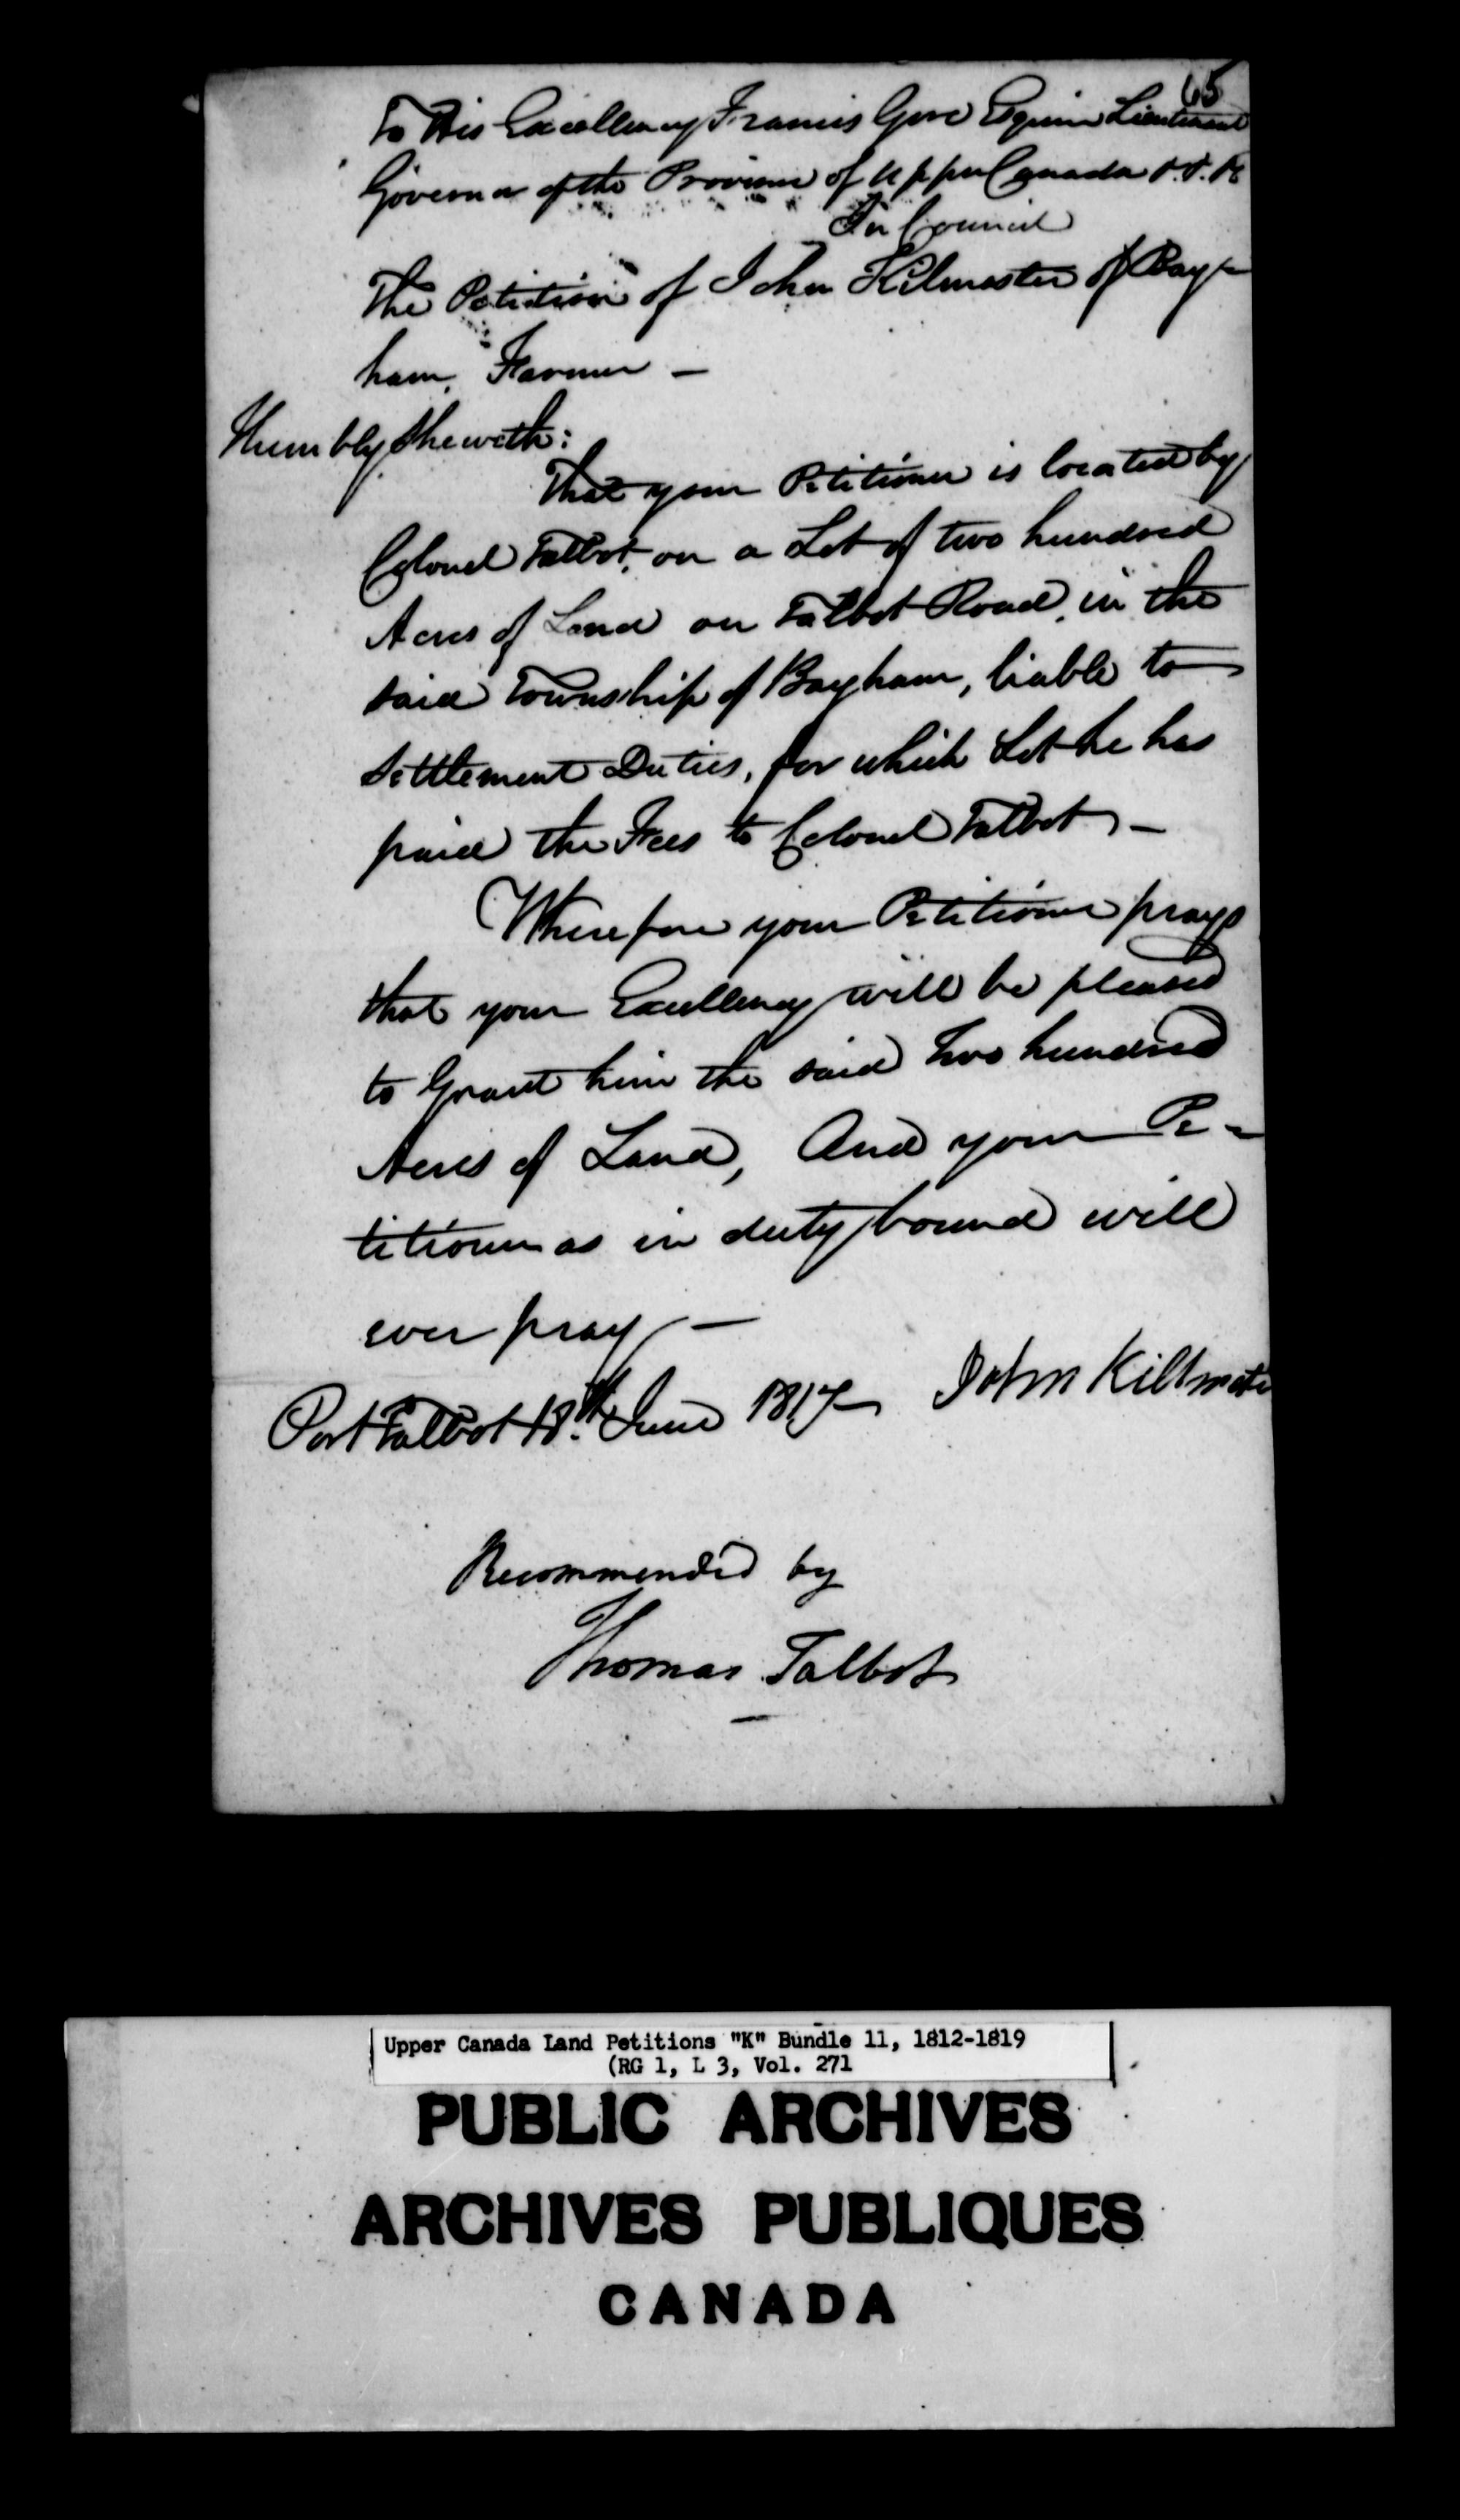 65
To His Excellency Francis Gore Esquire Lieutenant
Governor of the Province of Upper Canada &. &. &c
In Council
The Petition of John Kilmaster of Bay-
ham, Farmer —
Humbly Sheweth:
That your Petitioner is located by
Colonel Talbot, on a Lot of two hundred
Acres of Land on Talbot Road, in the
said Township of Bayham, liable to
Settlement Duties, for which Lot he has
paid the Fees to Colonel Talbot —
Wherefore your Petitioner prays
that your Excellency will be pleased
to Grant him the said two hundred
Acres of Land, And your Pe-
titioner as in duty bound will
ever pray —
Port Talbot 18th June 1817 John Killmaster
Recommended by
Thomas Talbot
Upper Canada Land Petitions "K" Bundle 11, 1812-1819
(RG 1, L 3, Vol. 271
PUBLIC ARCHIVES
ARCHIVES PUBLIQUES
CANADA